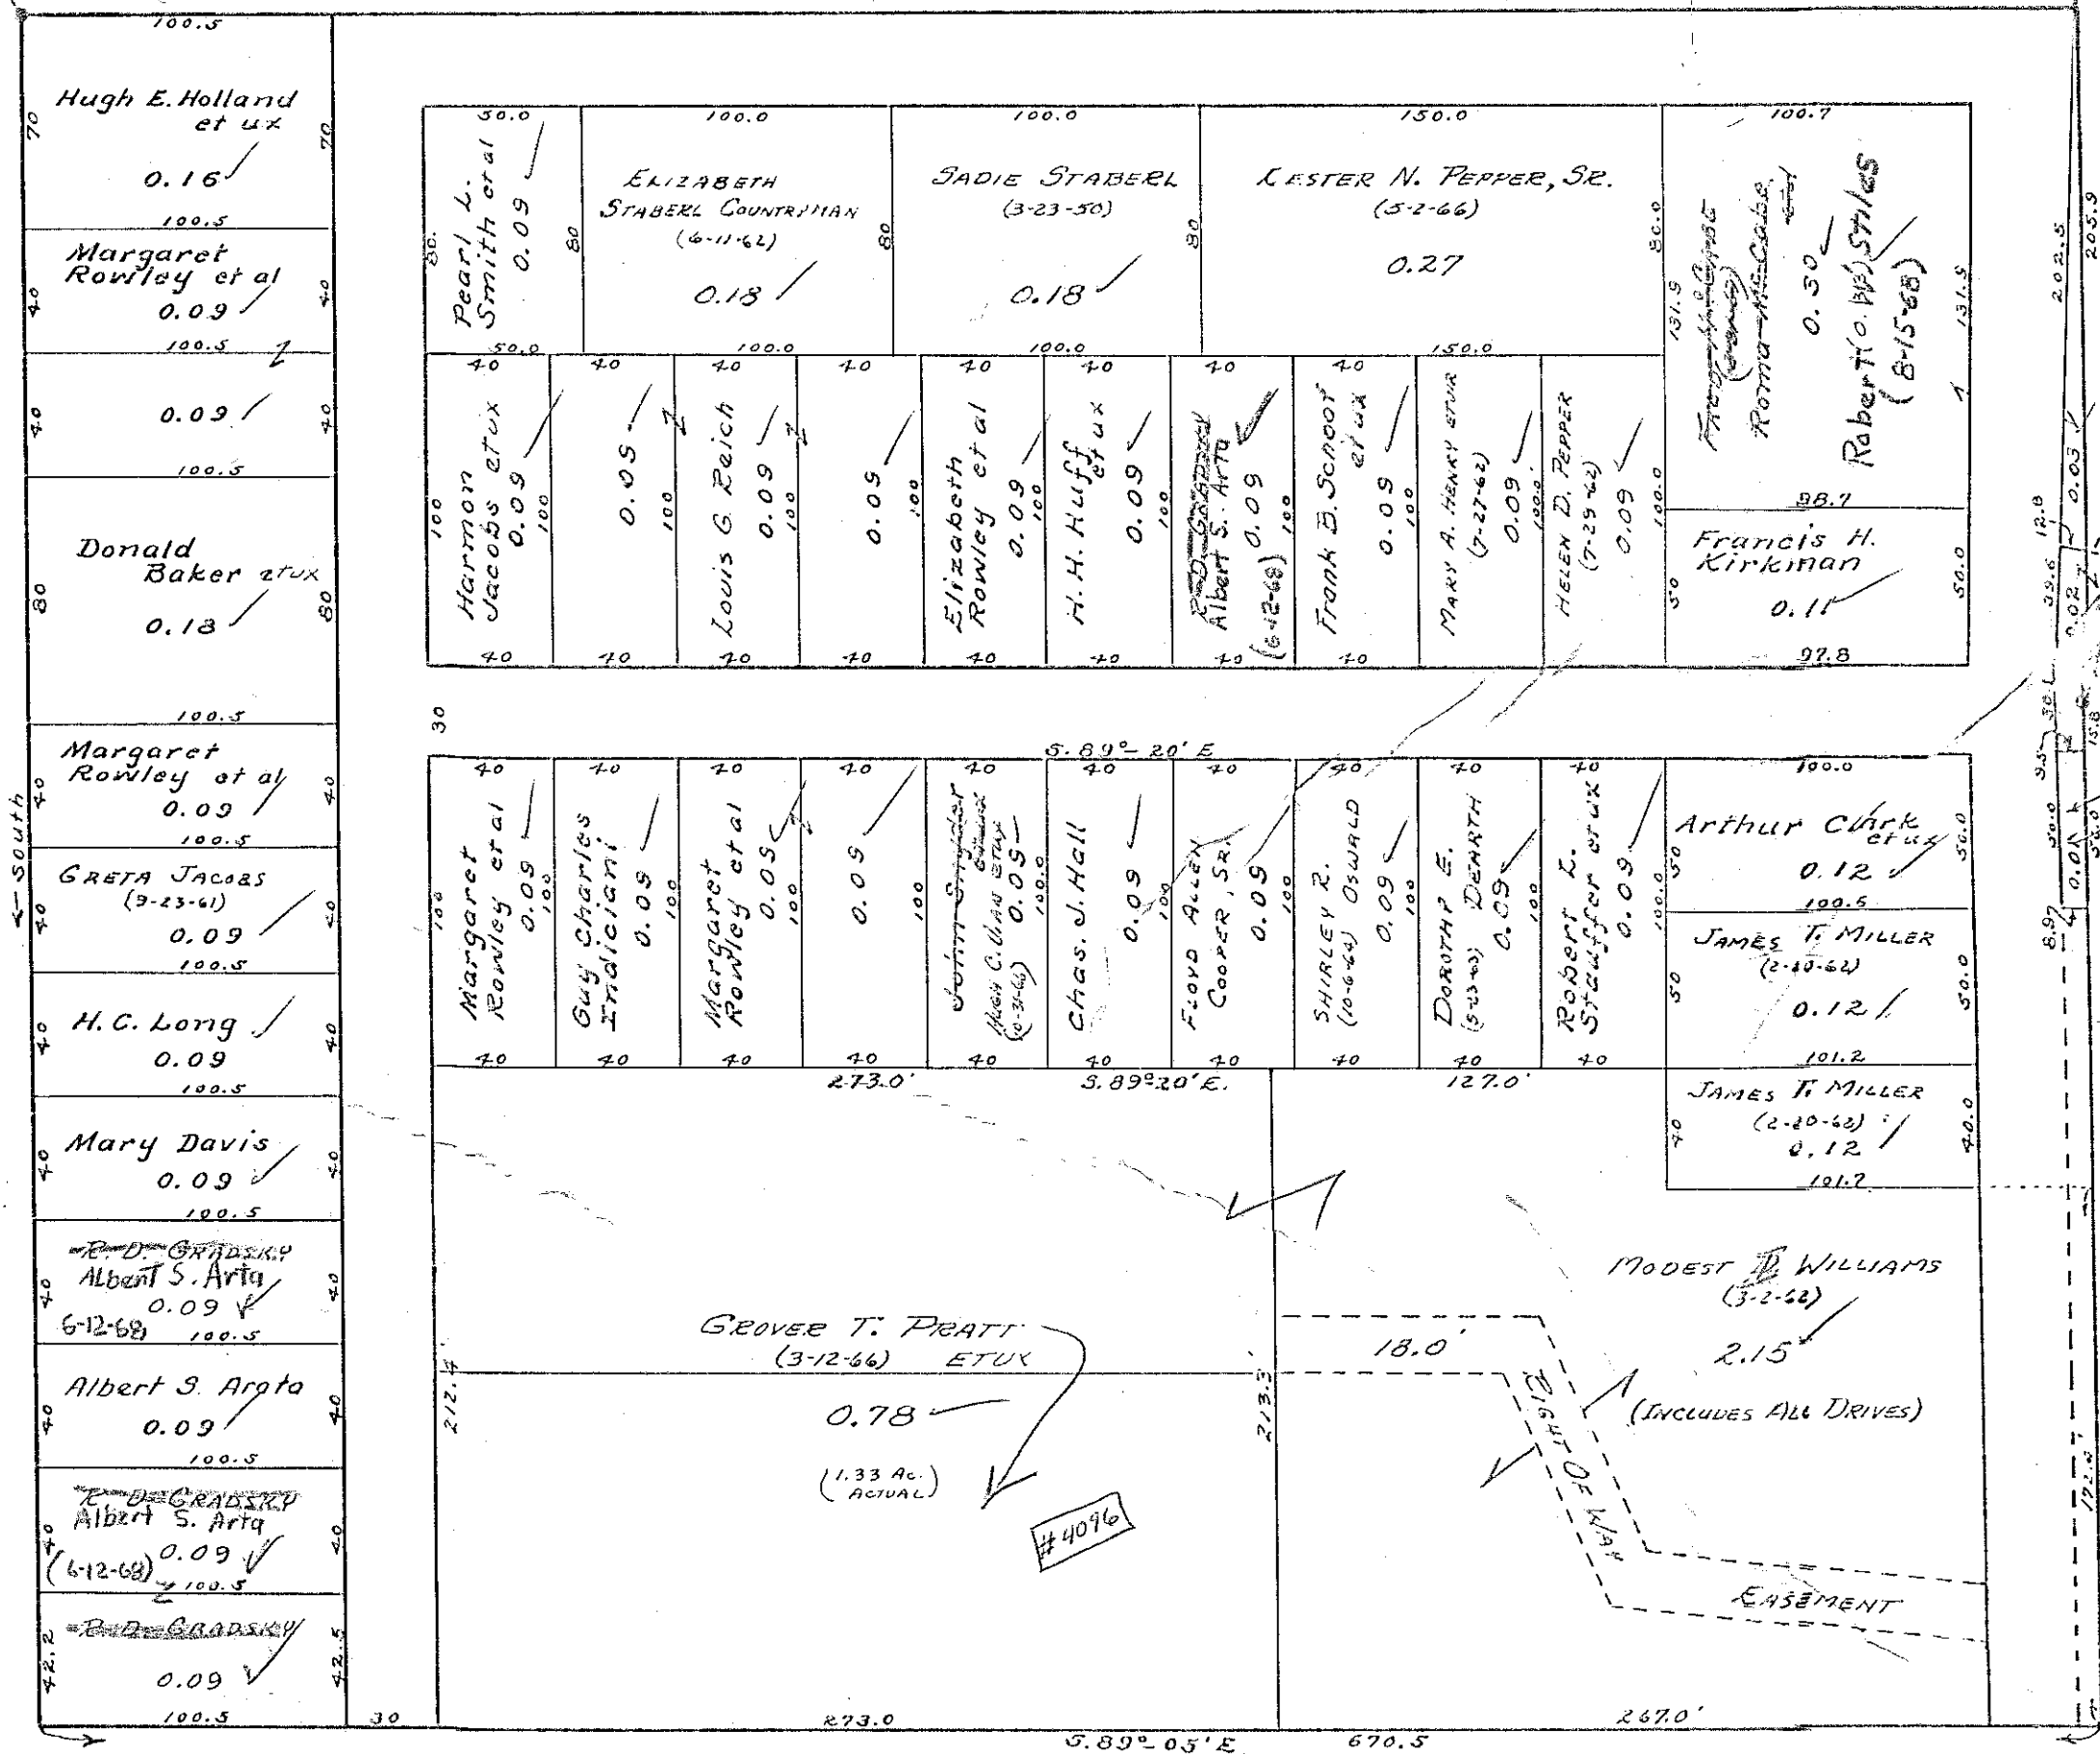 100.5
70
Hugh E. Holland
et ux
70
0.16
100.5
Margaret
Rowley et al
40
0.09
40
100.5
40
0.09
40
100.5
Donald
Baker etux
80
0.18
80
100.5
Margaret
Rowley et al
40
0.09
40
100.5
← South
GRETA JACOBS
(9-23-61)
40
0.09
40
100.5
H.C. Long
40
0.09
40
100.5
Mary Davis
40
0.09
40
100.5
R. D. GRADSKY
Albert S. Arta
40
0.09
40
6-12-68
100.5
Albert S. Arata
40
0.09
40
100.5
R. D. GRADSKY
Albert S. Arta
40
0.09
40
(6-12-68)
100.5
R. D. GRADSKY
42.2
0.09
42.5
100.5
30
50.0
80.
Pearl L.
Smith et al
0.09
80
50.0
100.0
ELIZABETH
STABERL COUNTRYMAN
(6-11-62)
0.18
80
100.0
100.0
SADIE STABERL
(3-23-50)
0.18
80
100.0
150.0
LESTER N. PEPPER, SR.
(5-2-66)
0.27
80.0
150.0
100.7
131.9
Roma McCabe
0.30
Robert (O.W.) Stiles
(8-15-68)
131.5
98.7
Francis H.
Kirkman
50
0.11
50.0
97.8
40
100
Harmon
Jacobs etux
0.09
100
40
40
0.09
100
40
40
Louis G. Reich
0.09
100
40
40
0.09
100
40
40
Elizabeth
Rowley et al
0.09
100
40
40
H. H. Huff
et ux
0.09
100
40
40
R. D. GRADSKY
Albert S. Arta
0.09
(6-12-68)
100
40
40
Frank B. Schoot
et ux
0.09
100
40
MARY A. HENRY ETUR
(7-27-62)
0.09
100.0
HELEN D. PEPPER
(7-29-62)
0.09
100.0
30
S. 89°-20' E
40
100
Margaret
Rowley et al
0.09
100
40
40
Guy Charles
Indiciani
0.09
100
40
40
Margaret
Rowley et al
0.09
100
40
40
0.09
100
40
40
John Snyder
0.09
100.0
40
40
Chas. J. Hall
0.09
100
40
40
FLOYD ALLEN
COOPER, SR.
0.09
100
40
40
SHIRLEY R.
(10-6-64) OSWALD
0.09
100
40
40
DOROTHY E.
(5-23-63) DEARTH
0.09
100
40
40
Robert L.
Stauffer et ux
0.09
100.0
40
100.0
Arthur Clark
et ux
50
0.12
50.0
100.6
JAMES T. MILLER
(2-20-62)
50
0.12
50.0
101.2
JAMES T. MILLER
(2-20-62)
40
0.12
40.0
101.7
273.0'
S.89°20'E.
127.0'
GROVER T. PRATT
(3-12-66) ETUX
212.4'
0.78
213.3'
(1.33 Ac.
ACTUAL)
#4096
MODEST D. WILLIAMS
(3-2-62)
18.0'
2.15
(INCLUDES ALL DRIVES)
RIGHT OF WAY
EASEMENT
273.0
267.0'
S.89°-05'E
670.5
202.5
205.9
12.8
0.03
39.6
0.02
30.1
9.5
15.8
50.0
0.01
50.0
8.97
172.0'